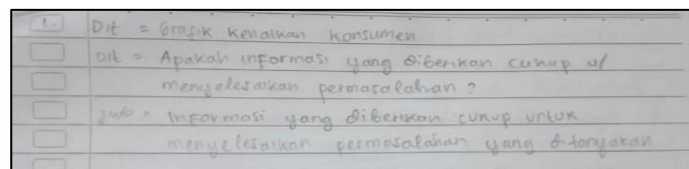 1. Dit = Grafik kenaikan konsumen
Dik = Apakah informasi yang diberikan cukup u/
menyelesaikan permasalahan?
Jwb = Informasi yang diberikan cukup untuk
menyelesaikan permasalahan yang ditanyakan